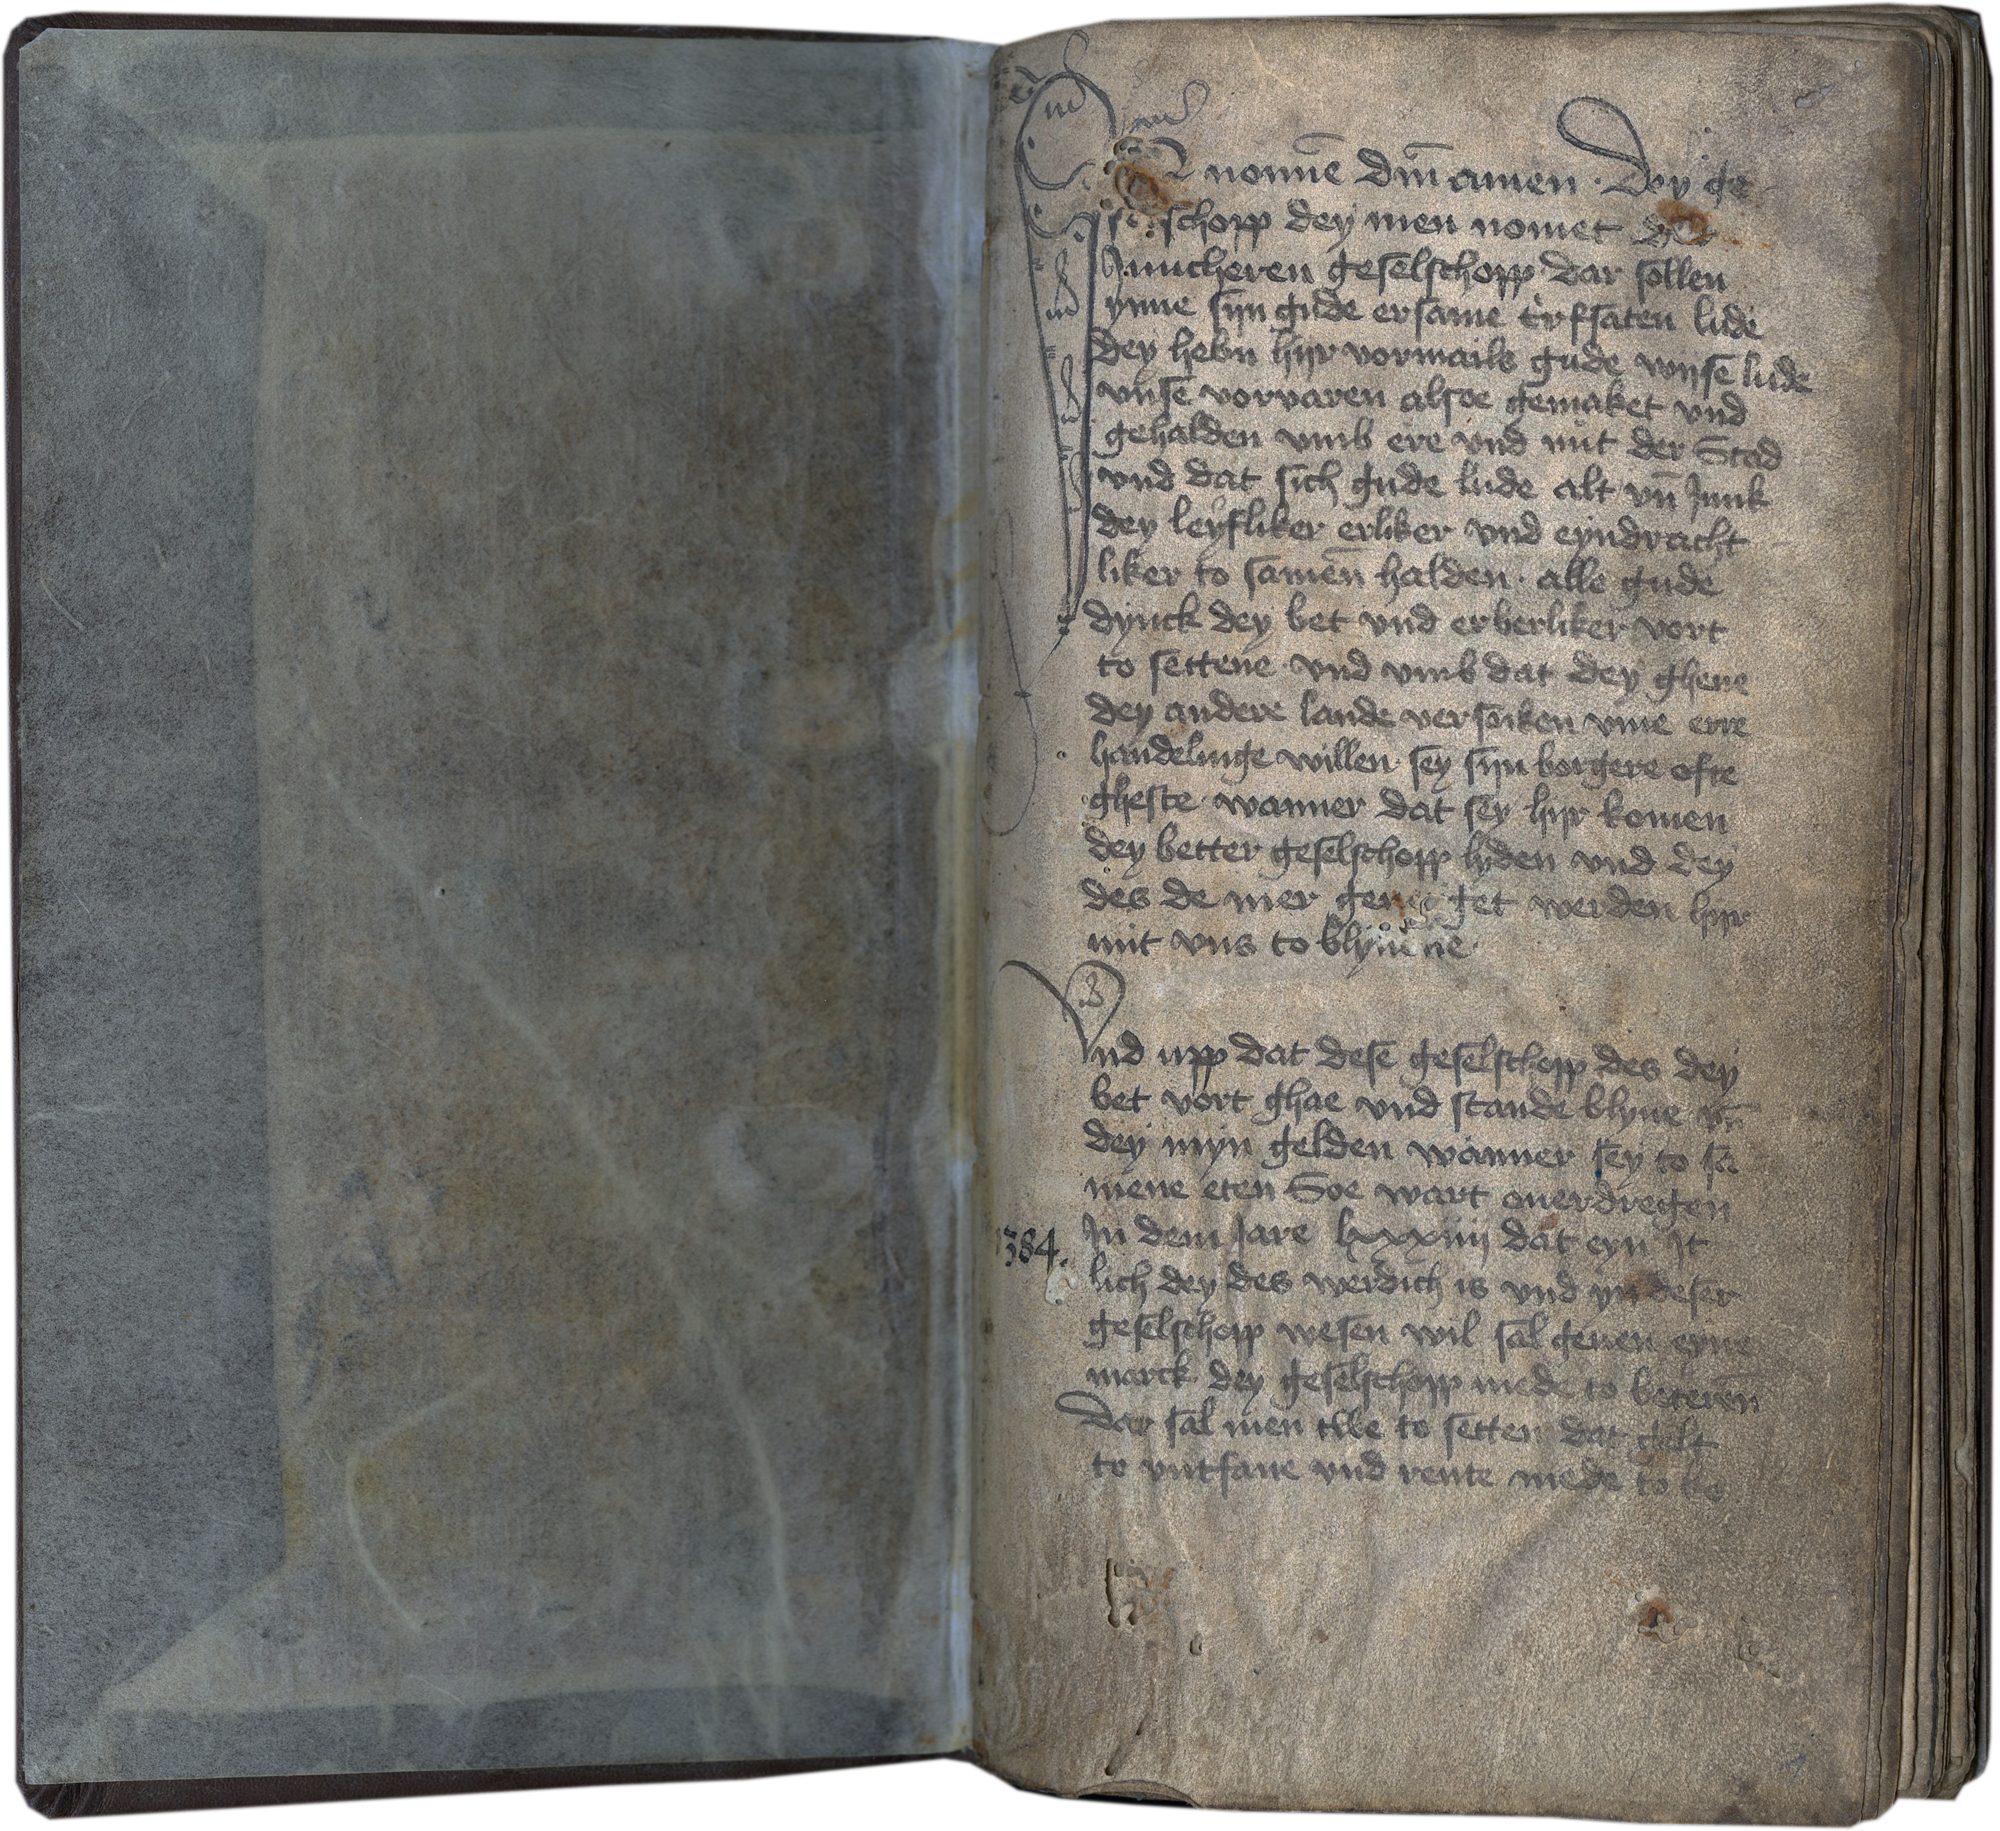 In nomīe dm̄ amen · Dey ge
selschopp dey men nomet der
Juncheren geselschopp dar sollen
ynne sijn gude ersame erfsaten lude
dey hebn hijr vormails gude wijse lude
vnse vorvaren alsoe gemaket vnd
gehalden vmb ere vnd nut der Stad
vnd dat sich gude lude alt vn̄ Junk
dey leyfliker erliker vnd eyndracht
liker to samēn halden · alle gude
dynck dey bet vnd erberliker vort
to settene · vnd vmb dat dey ghene
dey andere lande versoiken vme erre
handelinge willen · sey sijn borgere ofte
gheste · wanner dat sey hijr komen
dey better geselschopp lyden vnd dey
des de mer get werden hijr
mit vns to blyuene ·
Vnd upp dat dese geselschopp des dey
bet vort ghae vnd stande blyue vn̄
dey myn gelden wanner sey to sa
mene eten Soe wart ouerdregen
1384.
In dem Jare lxxxiiij dat eyn It
lich dey des werdich is vnd yn deser
geselschopp wesen wil sal geuen eyne
marck dey geselschopp mede to beterēn
Dar sal men to setten dat gelt
to vntfane vnd rente mede to be